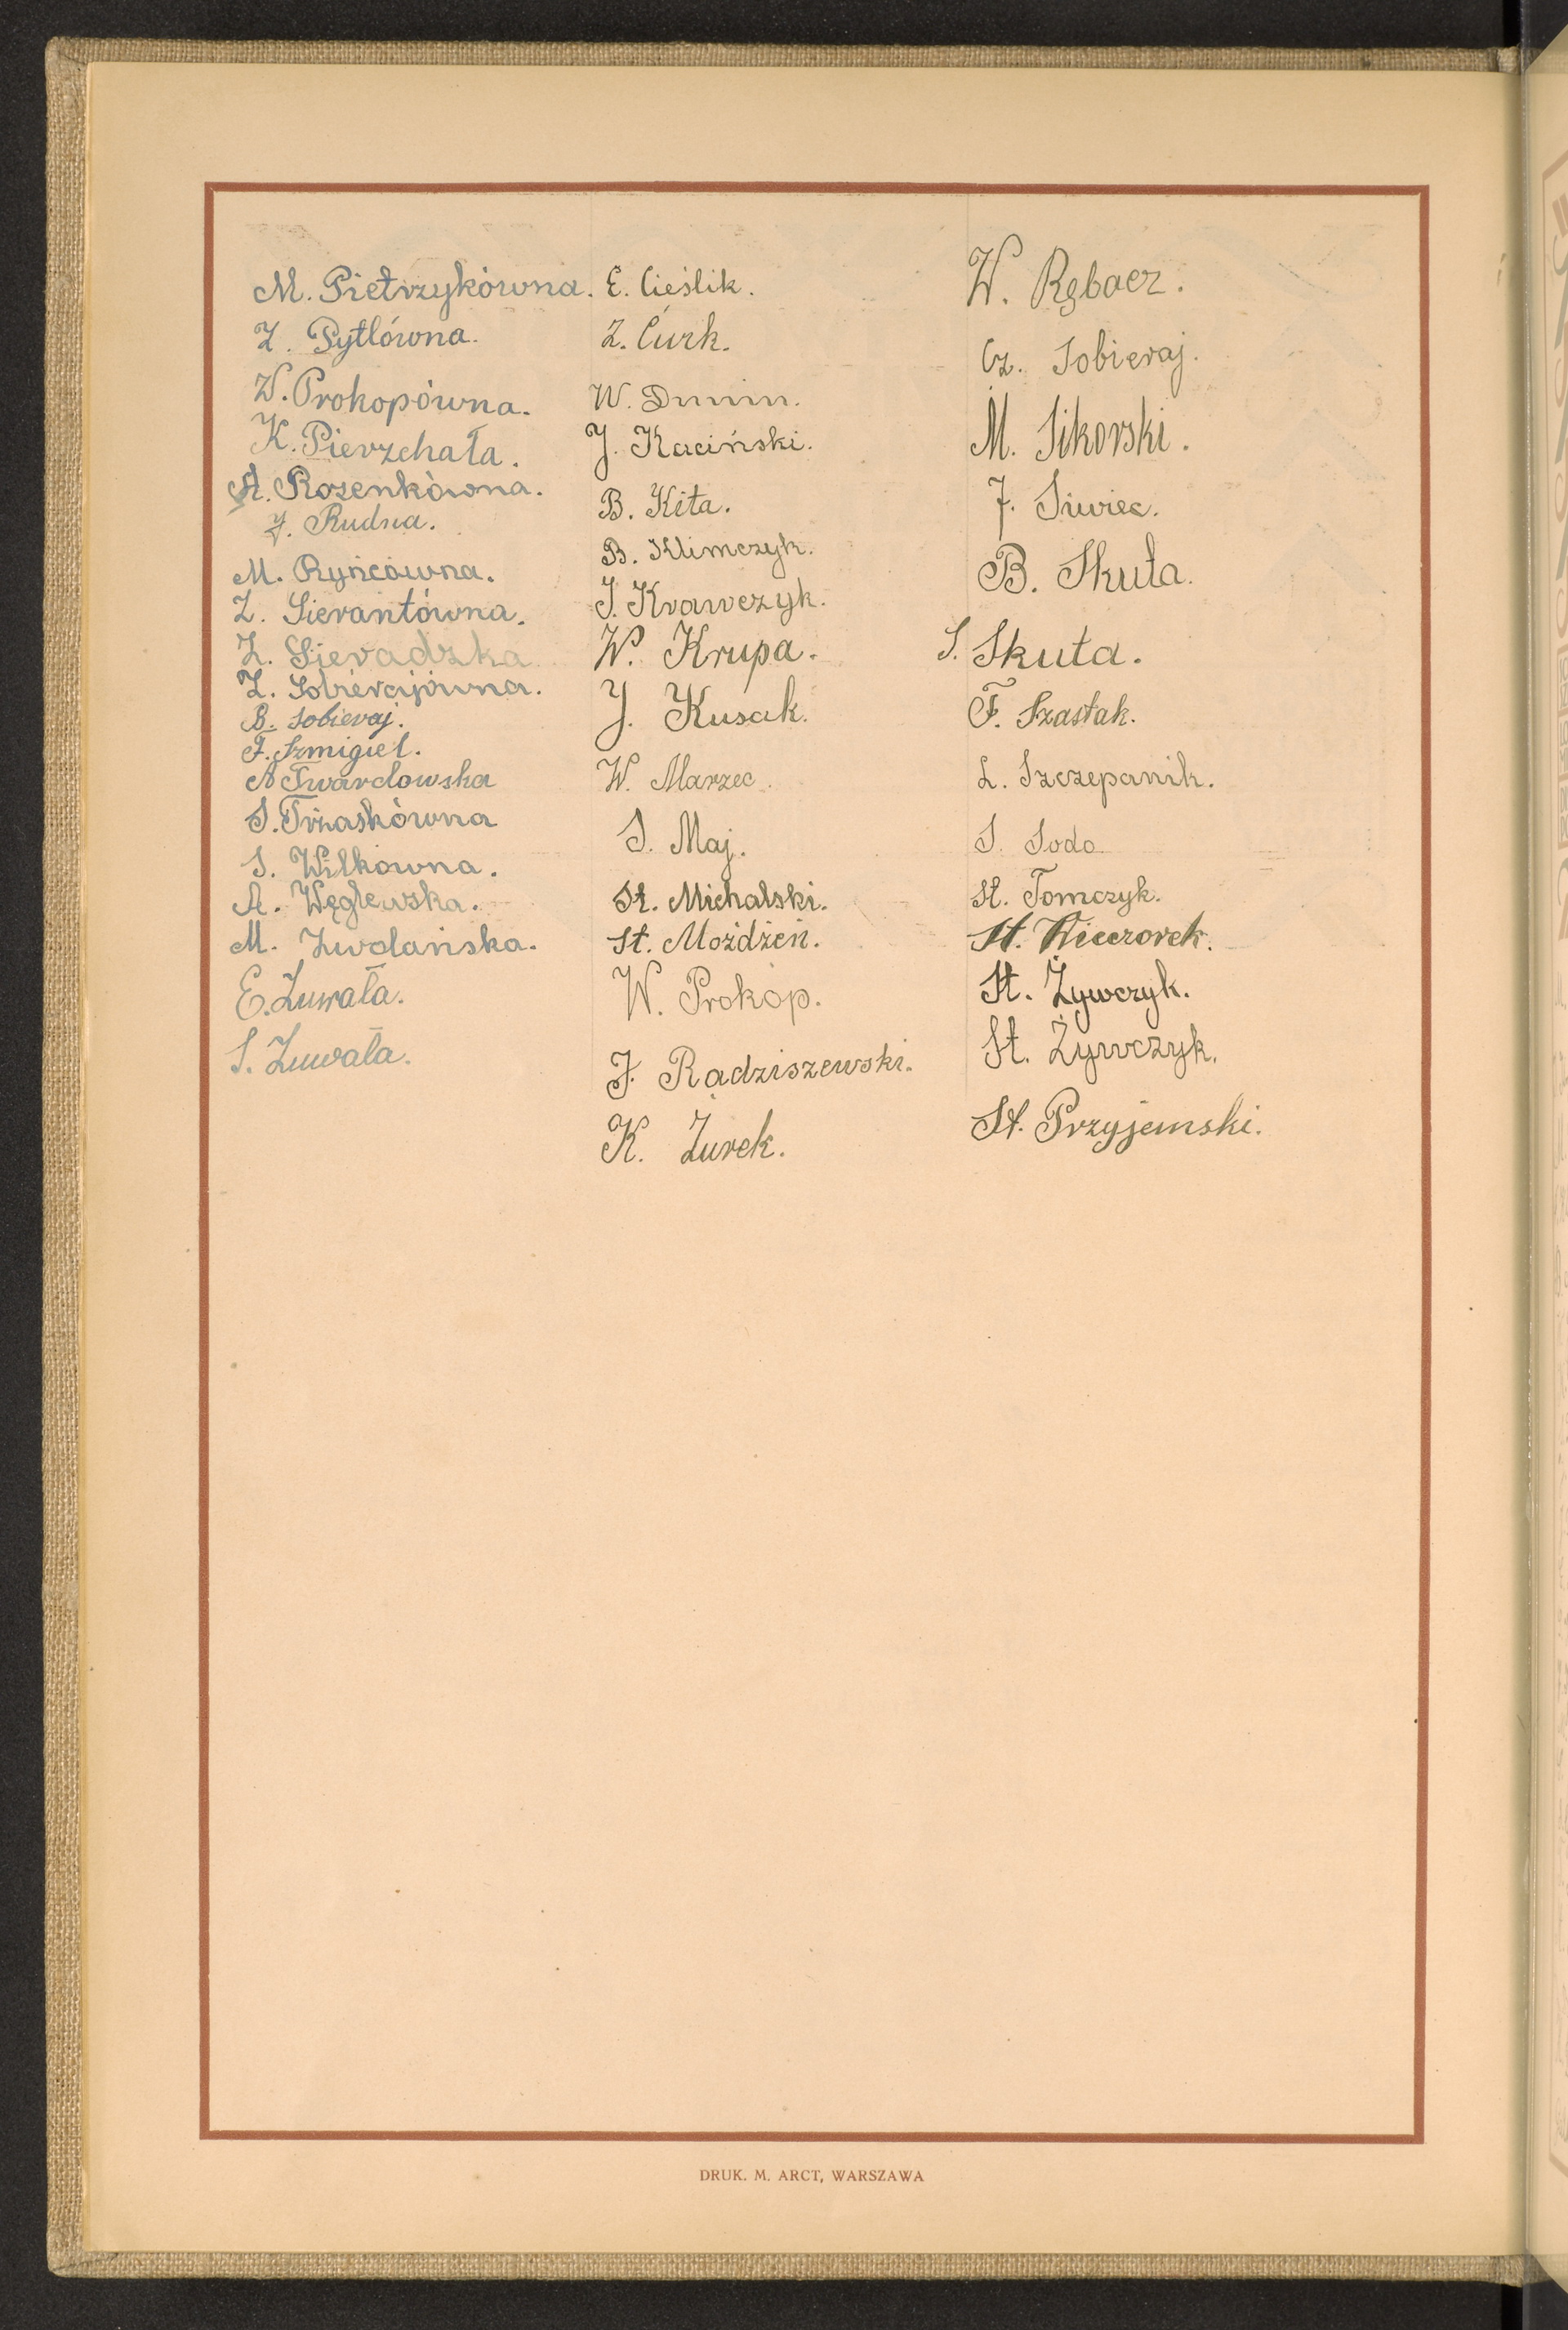 M. Pietrzykówna.
Z. Pytlówna.
W. Prokopówna.
K. Pierzchała.
A. Rozenkówna.
J. Rudna.
M. Ryńcówna.
Z. Sierantówna.
Z. Sieradzka
Z. Sobierajówna.
B. Sobieraj.
F. Szmigiel.
A Twardowska
S. Trzaskówna
S. Wilkówna.
A. Węglewska.
M. Zwolańska.
E. Zuwała.
S. Zuwała.
E. Cieślik.
Z. Ćwik.
W. Dunin.
J. Kaciński.
B. Kita.
B. Klimczyk.
J. Krawczyk.
W. Krupa.
J. Kusak.
W. Marzec.
S. Maj.
St. Michalski.
St. Możdżeń.
W. Prokop.
J. Radziszewski.
K. Żurek.
W. Rębacz.
Cz. Sobieraj.
M. Sikorski.
J. Siwiec.
B. Skuta.
S. Skuta.
F. Szastak.
L. Szczepanik.
S. Soda
St. Tomczyk.
St. Wieczorek.
St. Żywczyk.
St. Żywczyk.
St. Przyjemski.
DRUK. M. ARCT, WARSZAWA